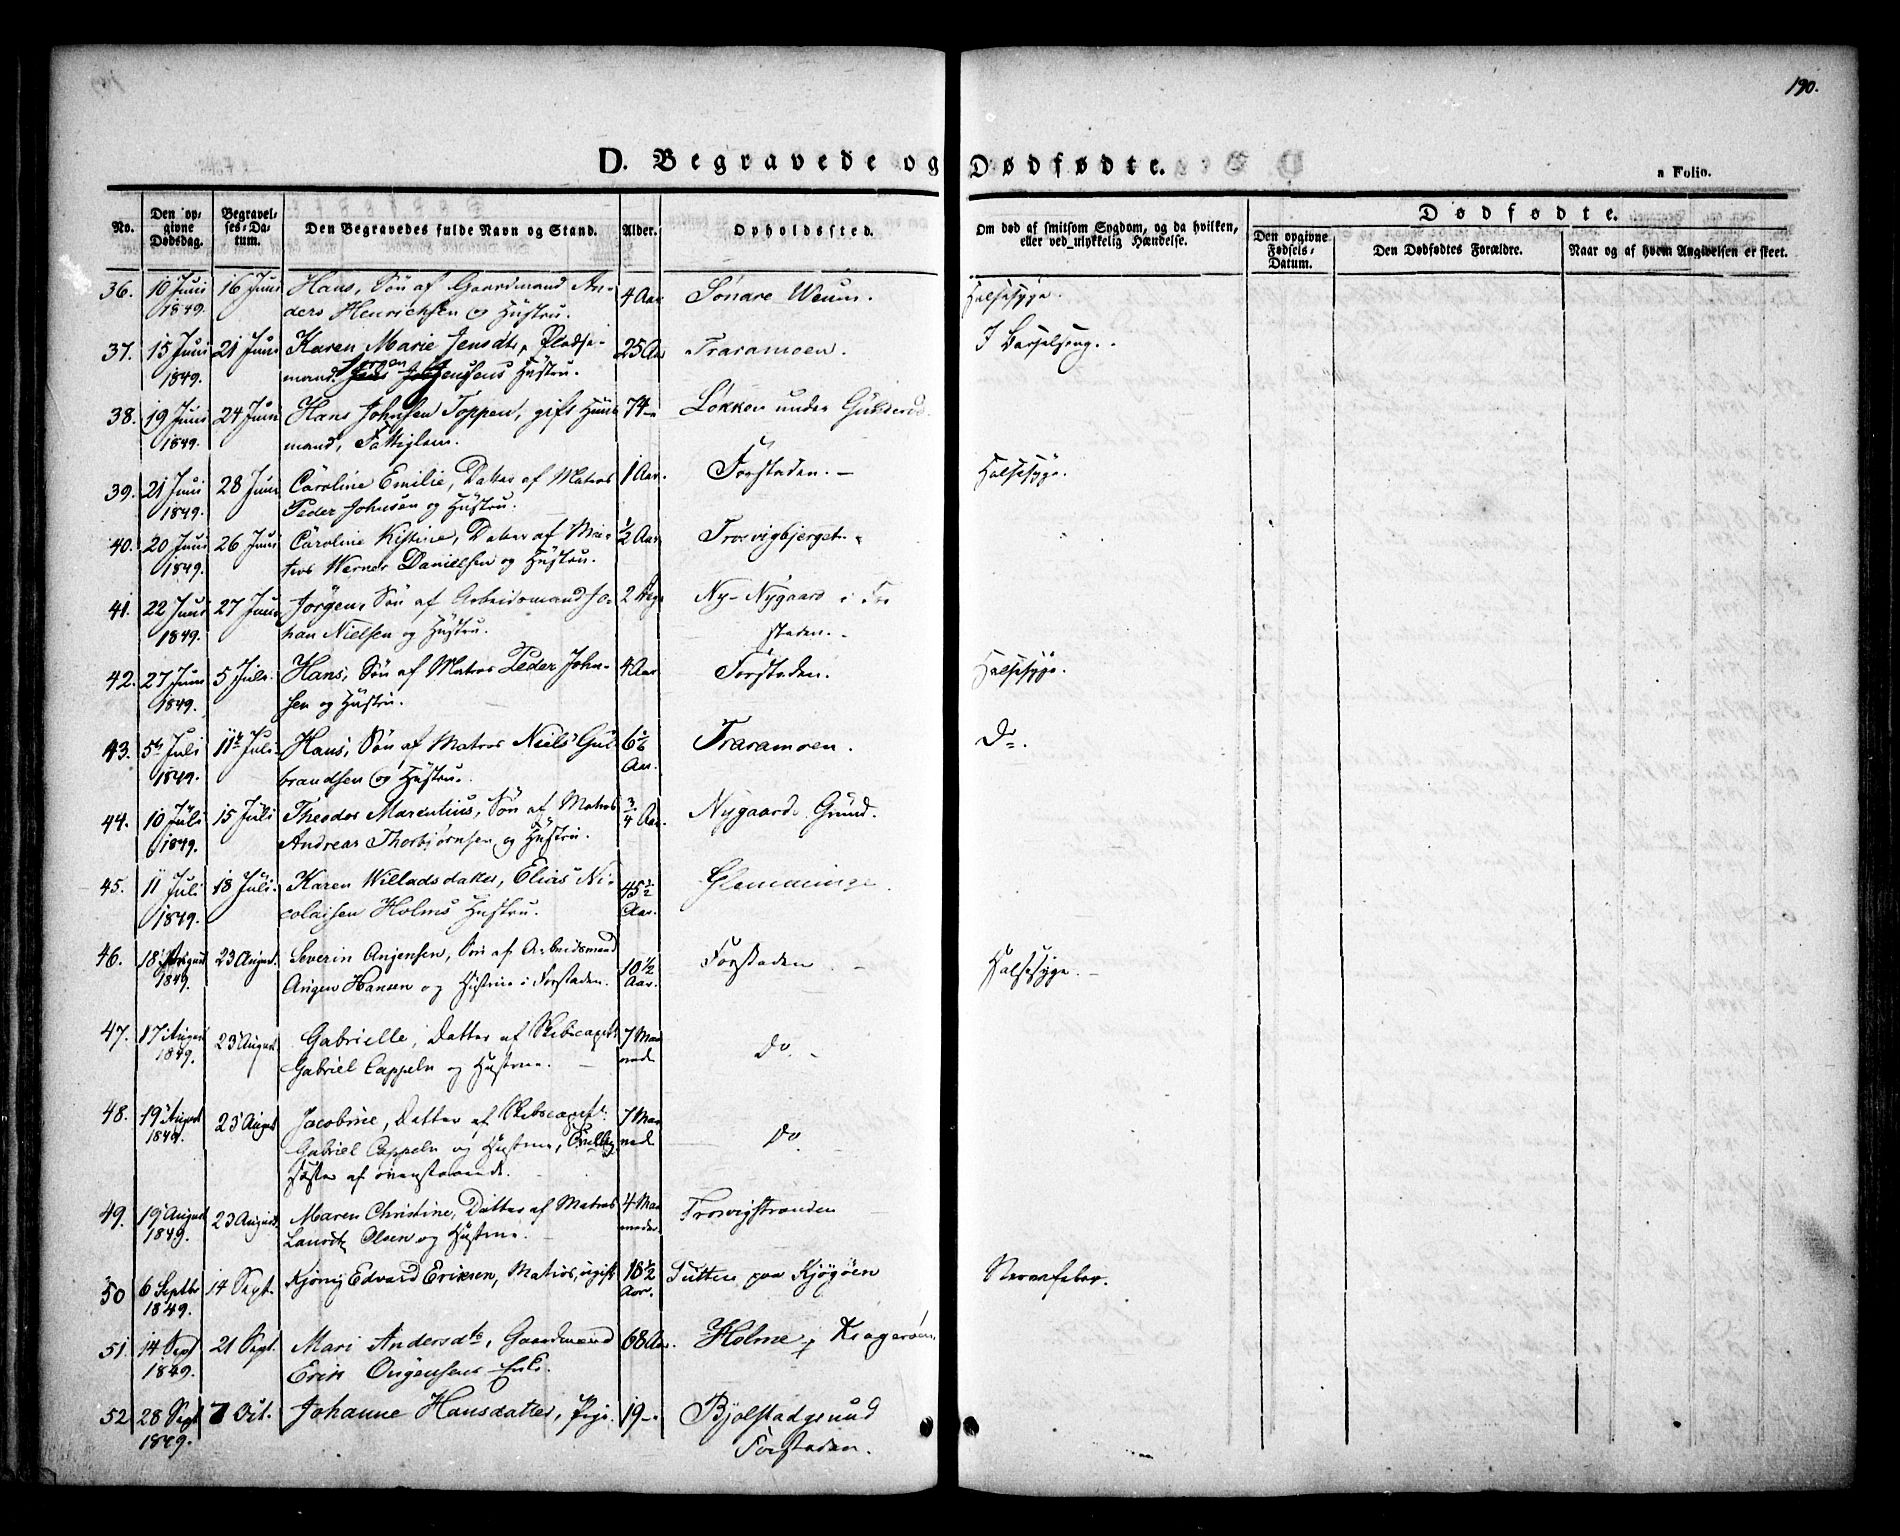 190.
D. Begravede og Dødfødte.
a Folio.
No. Den opgivne Dødsdag. Begravelses-Datum. Den Begravedes fulde Navn og Stand. Alder. Opholdssted. Om død af smitsom Sygdom, og da hvilken, eller ved ulykkelig Hændelse. Dødfødte. Den opgivne Fødsels-Datum. Den Dødfødtes Forældre. Naar og af hvem Angivelsen er skeet.
36. 10 Juni 16 Juni Hans, Søn af Gaardmand An- 4 Aar Søndre Weum. Halsesyge.
1849. ders Henrichsen og Hustru.
37. 15 Juni 21 Juni Karen Marie Jensdtr, Pladse- 25 Aar Traramoen. I Barselseng.
1849. mand Jensens Hustru.
38. 19 Juni 24 Juni Hans Johnsen Toppen, gift Huus- 74 - Løkken under
1849. mand, Fattiglem.
39. 21 Juni 28 Juni Caroline Emilie, Datter af Matros 1 Aar. Forstaden. - Halsesyge.
1849. Peder Johnsen og Hustru.
40. 20 Juni 26 Juni Caroline Kistine, Datter af Ma- ½ Aar Trosvigbjerget.
1849. tros Werner Danielsen og Hustru.
41. 22 Juni 27 Juni Jörgen, Søn af Arbeidsmand Jo- 2 Ny-Nygaard i For
1849. han Nielsen og Hustru. staden.
42. 27 Juni 5 Juli Hans, Søn af Matros Peder John- 4 Aar Forstaden. Halsesyge.
1849. sen og Hustru.
43. 5te Juli 11te Juli Hans, Søn af Matros Niels Gul- 6 Traramoen. Do.
1849. brandsen og Hustru. Aar.
44. 10 Juli 15 Juli Theodor Marentius, Søn af Matros ¾ Aar. Nygaards Grund.
1849. Andreas Thorbjørnsen og Hustru.
45. 11 Juli 18 Juli. Karen Willadsdatter, Elias Ni- 45½ Glemminge.
1849. colaisen Holms Hustru. Aar.
46. 18 August 23 August. Severin Anjensen, Søn af Arbeidsmand 10½ Forstaden Halsesyge. -
1849. Angen Hansen og Hustrue i Forstaden. Aar.
47. 17 August 23 August. Gabrielle, Datter af Skibscapt: 7 Maa Do. -
1849. Gabriel Cappeln og Hustrue. neder
48. 19 August 25 August Jacobine, Datter af Skibscapt: 7 Maa Do
1849. Gabriel Cappeln og Hustrue, Tvilling neder
Søster af ovenstaaende.
49. 19 August 23 August. Maren Christine, Datter af Matros 4 Maa Trosvigstranden
1849. Lauritz Olsen og Hustrue. neder.
50 6 Septbr 14 Sept. Edvard Eriksen, Matros, ugift 18½ paa Kjøgøen Nervefeber.
1849. Aar.
51. 14 Sept 21 Sept. Mari Andersdtr, Gaardmand 68 Aar. Holme
1849. Erik Ongensens Enke.
52 28 Sept 7 Oct. Johanne Hansdatter, Pige. 19 - Bjølstadgsund
1849. Forstaden.